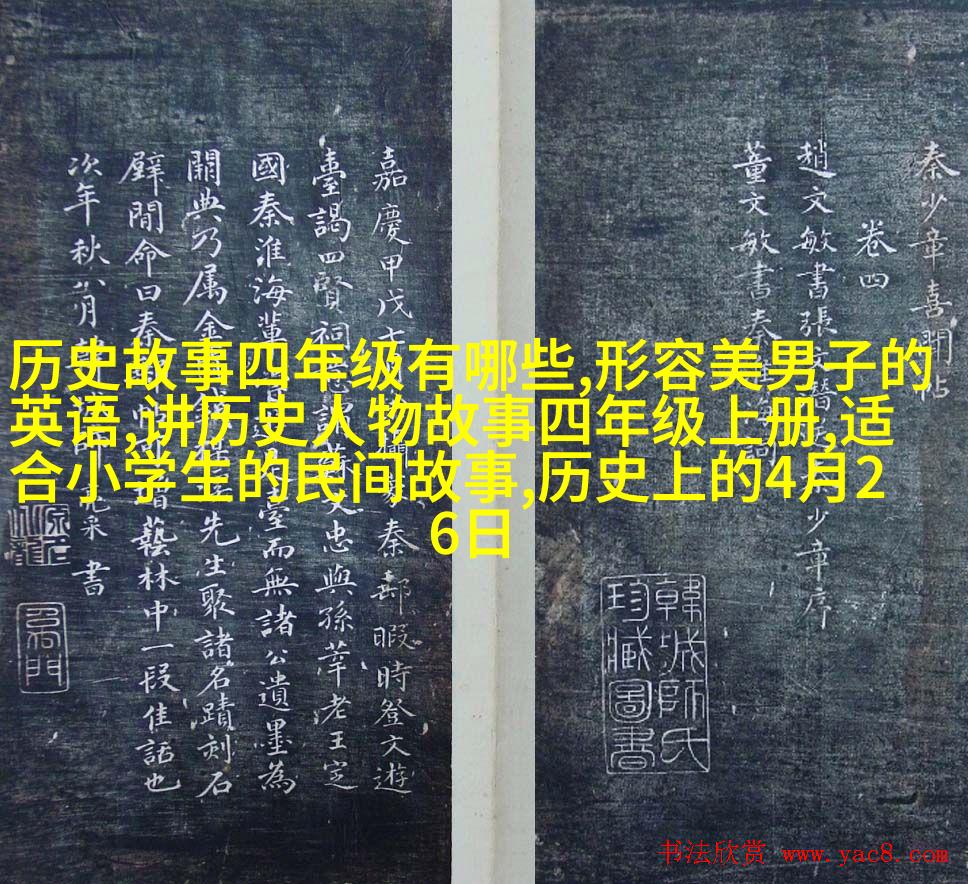 历史故事四年级有哪些,形容美男子的
英语,讲历史人物故事四年级上册,适
合小学生的民间故事,历史上的4月2
6日
秦少章喜開帖
卷四
趙文敏書張文潛 少章序
董文敏書秦淮海詞
韓城師氏
珍藏圖書
嘉慶甲戌七 秦郵暇時登文遊
臺謁四賢祠 蘇文忠與孫莘老王定
國秦淮海輩 臺而無諸公遺墨為
闕典乃属金 先生聚諸名蹟刻石
壁間命曰秦郵帖 藝林中一段佳話也
次年秋八月 師亮采書
书法欣赏 www.yac8.com